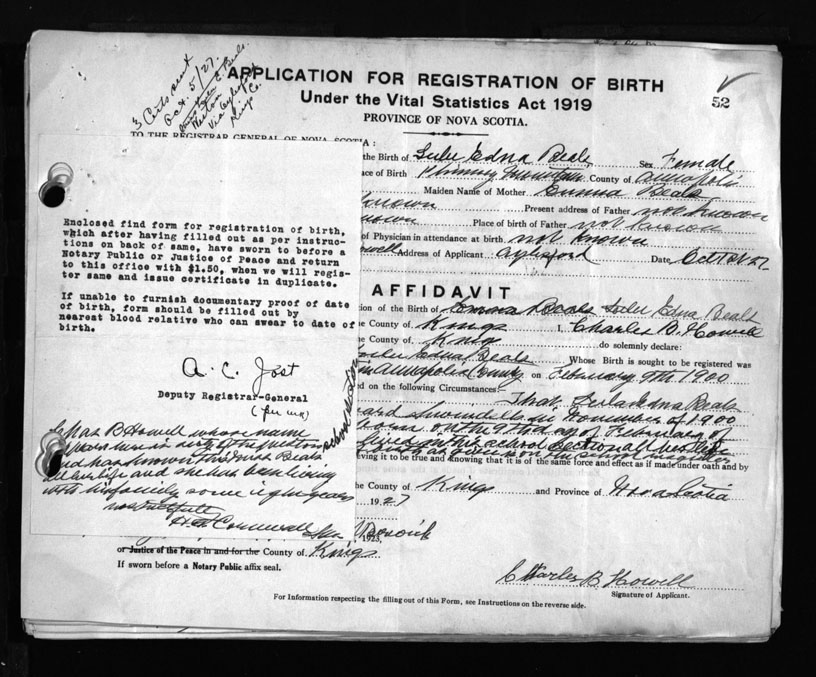 3 Certs sent
Oct 5/27.
APPLICATION FOR REGISTRATION OF BIRTH
Under the Vital Statistics Act 1919
52
PROVINCE OF NOVA SCOTIA.
TO THE REGISTRAR GENERAL OF NOVA SCOTIA :
the Birth of Lulu Edna Beals Sex Female
ace of Birth Phinney Mountain County of Annapolis
Maiden Name of Mother Emma Beals
known Present address of Father not known
known Place of birth of Father not known
of Physician in attendance at birth not known
owell Address of Applicant Aylesford Date Oct 1st 27
Enclosed find form for registration of birth,
which after having filled out as per instruc-
tions on back of same, have sworn to before a
Notary Public or Justice of Peace and return
to this office with $1.50, when we will regis-
ter same and issue certificate in duplicate.
If unable to furnish documentary proof of date
of birth, form should be filled out by
nearest blood relative who can swear to date of
birth.
A. C. Jost
Deputy Registrar-General
AFFIDAVIT
tion of the Birth of Emma Beals Lulu Edna Beals
e County of Kings I, Charles B. Howell
e County of Kings do solemnly declare:
Lulu Edna Beals Whose Birth is sought to be registered was
in Annapolis County on February 9th 1900
ed on the following Circumstances: That Lula Edna Beals
of 1900
born on the 9th day of February
eving it to be true and knowing that it is of the same force and effect as if made under oath and by
he County of Kings and Province of Nova Scotia
1927
Chas B Howell whose name
and has known Beals
all her life and she has been living
with his family some eight years
1923,
or Justice of the Peace in and for the County of Kings
If sworn before a Notary Public affix seal.
Charles B Howell
Signature of Applicant.
For Information respecting the filling out of this Form, see Instructions on the reverse side.